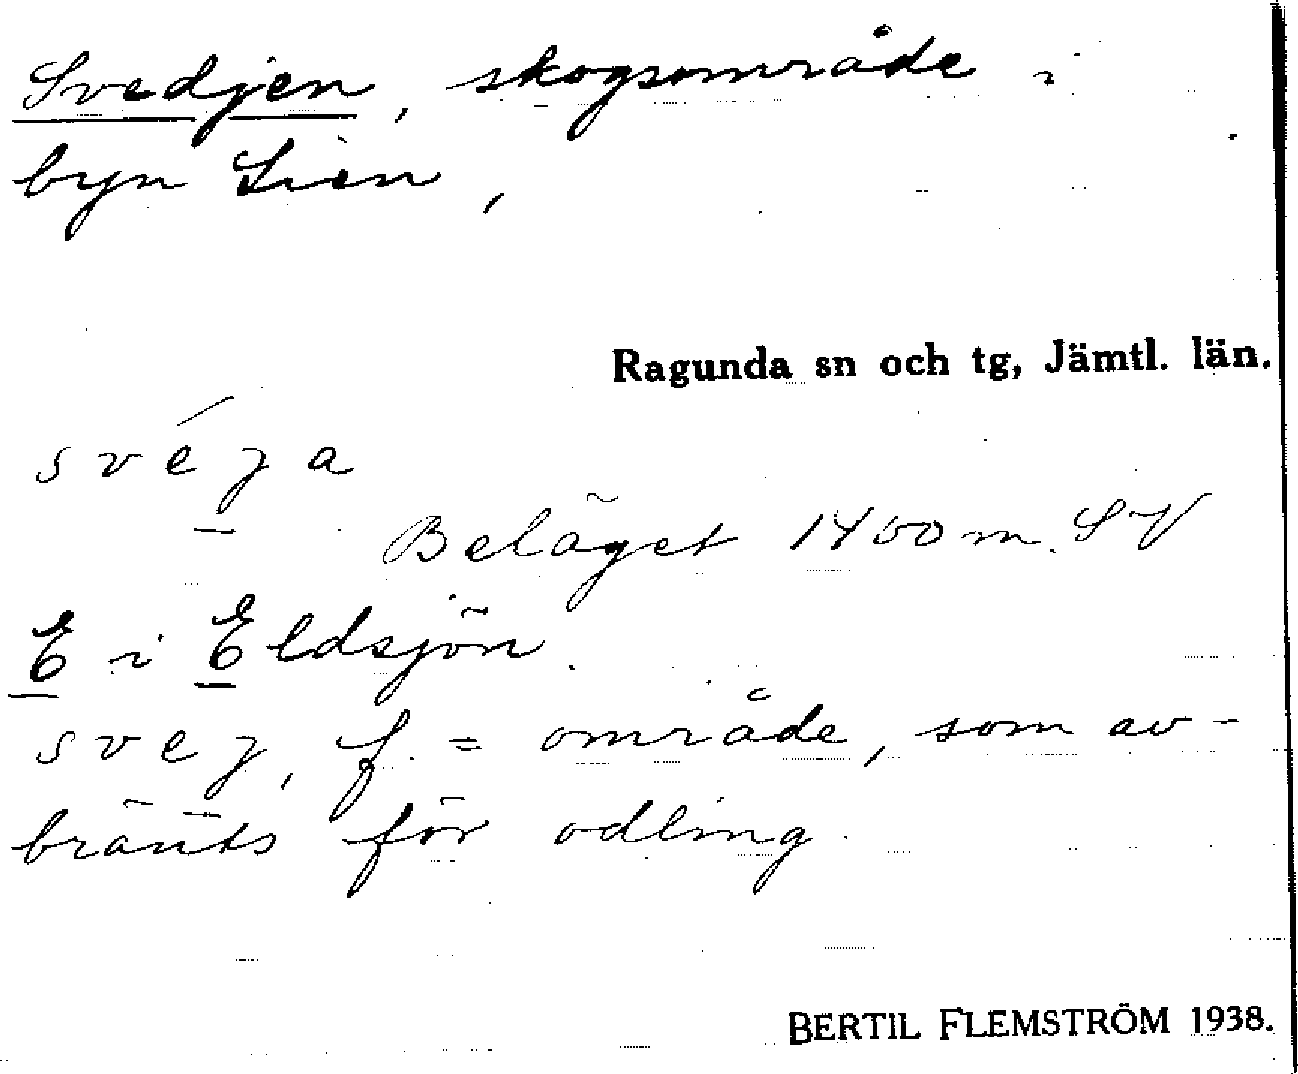 Svedjen, skogsområde i
byn Lien,
Ragunda sn och tg, Jämtl. län.
svéja
Beläget 1400 m. SV
E i Eldsjön.
svej, f. = område, som av-
bränts för odling.
BERTIL FLEMSTRÖM 1938.